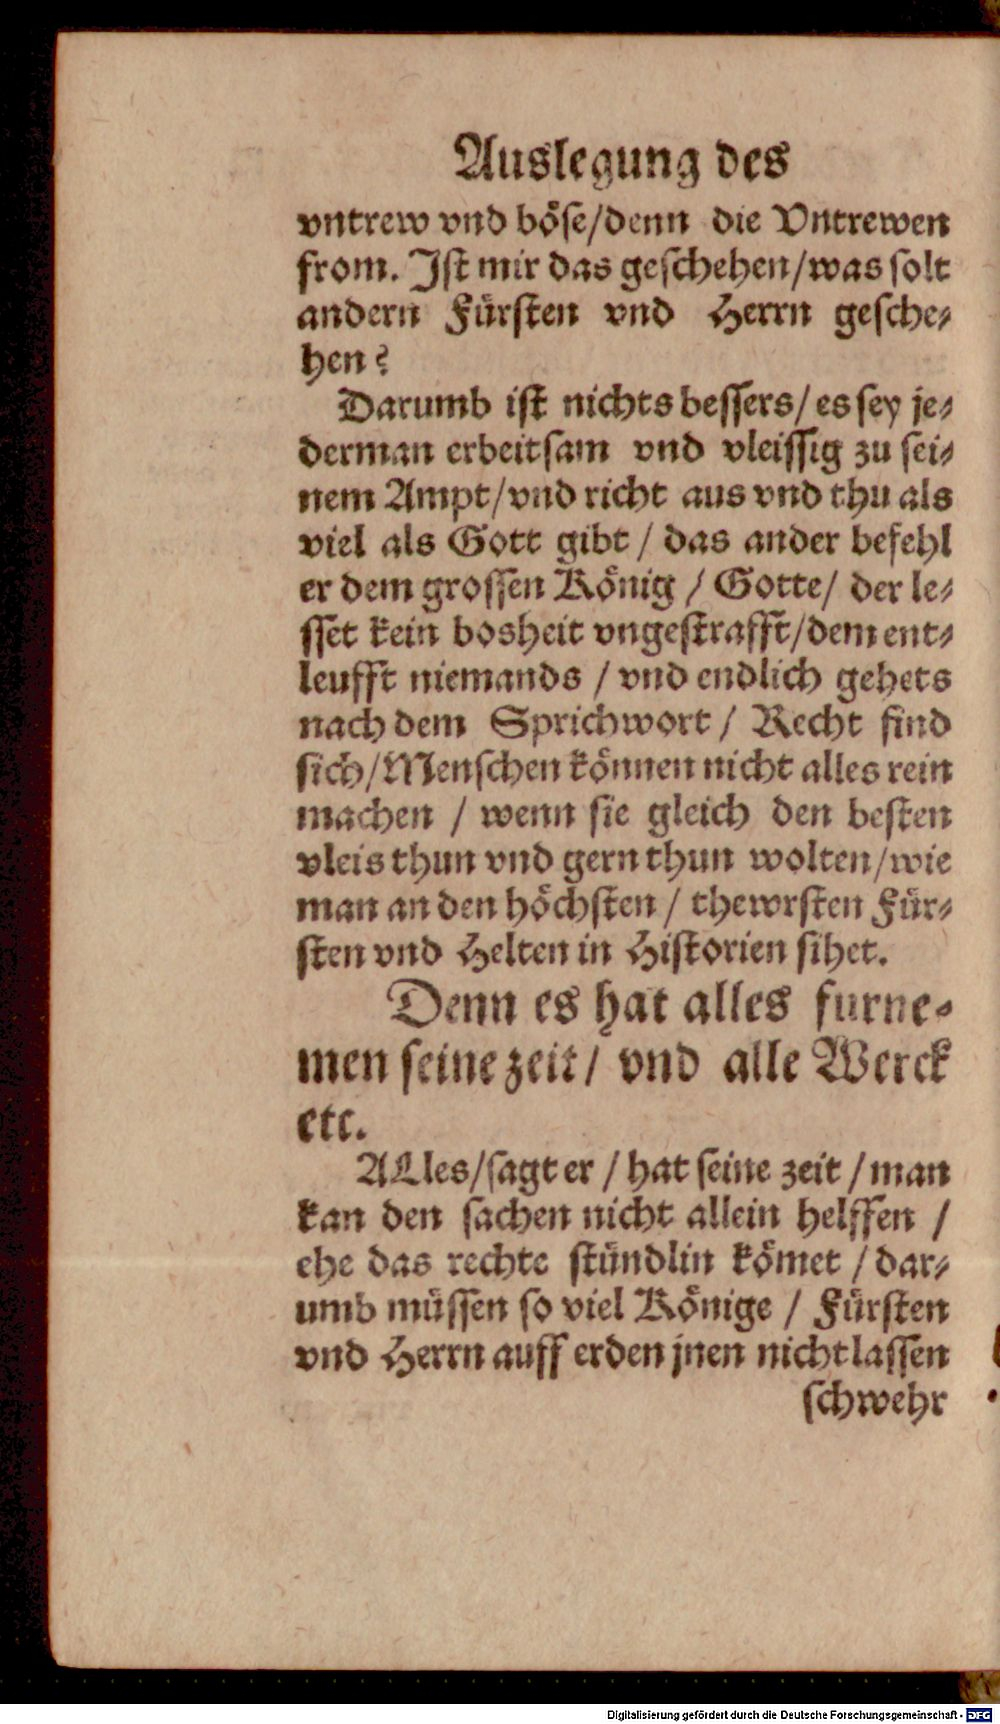 Auslegung des
vntrew vnd böse/denn die Vntrewen
from. Jst mir das geschehen/was solt
andern Fürsten vnd Herrn gesche-
hen?
Darumb ist nichts bessers/ es sey je-
derman erbeitsam vnd vleissig zu sei-
nem Ampt/vnd richt aus vnd thu als
viel als Gott gibt / das ander befehl
er dem grossen König / Gotte/ der le-
sset kein bosheit vngestrafft/dem ent-
leufft niemands / vnd endlich gehets
nach dem Sprichwort / Recht find
sich/Menschen können nicht alles rein
machen / wenn sie gleich den besten
vleis thun vnd gern thun wolten/wie
man an den höchsten / thewrsten Für-
sten vnd Helten in Historien sihet.
Denn es hat alles furne-
men seine zeit/ vnd alle Werck
etc.
ALles/sagt er / hat seine zeit / man
kan den sachen nicht allein helffen /
ehe das rechte stündlin kömet / dar-
umb müssen so viel Könige / Fürsten
vnd Herrn auff erden jnen nicht lassen
schwehr
Digitalisierung gefördert durch die Deutsche Forschungsgemeinschaft - DFG